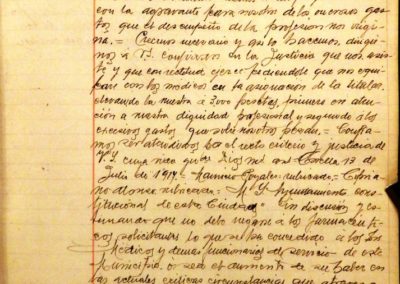 con la
tos que el desempeño de la profesion nos origi
na. = Creemos necesario y asi lo hacemos, dirigir
nos á V.S. confiando en la Justicia que nos asis
te y que con rectitud ejerce pidiendole que nos equi
pare con los médicos en la asignacion de la titular,
elevando la nuestra á 3,000 pesetas, primero en aten
ción á nuestra dignidad profesional y segundo á los
excesivos gastos que sobre nosotros pesan. = Confia
mos ser atendidos por el recto criterio y justicia de
V.S. cuya vida gue Dios ms as 13 de
Julio de 1917. = rubricado = 
no Alonso rubricado. = M. Y. Ayuntamiento cons
titucional de esta Ciudad. = En discusión y es
timando que no debe negarse á los farmaceuti
cos solicitantes lo que se ha concedido á los Sres
Médicos y demas funcionarios de servicio de este
Municipio, ó sea el aumento de su haber en
las actuales criticas circunstancias que